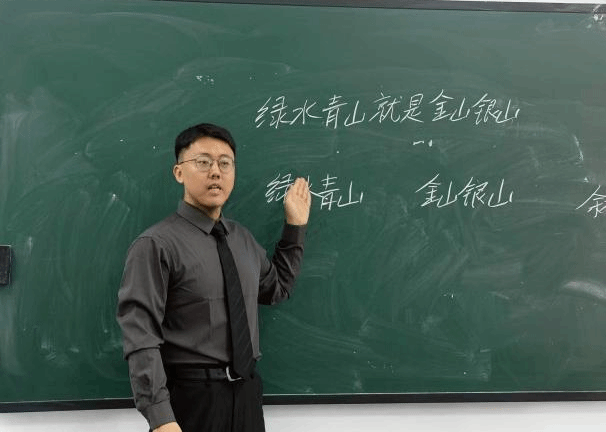 绿水青山就是金山银山
绿水青山 金山银山